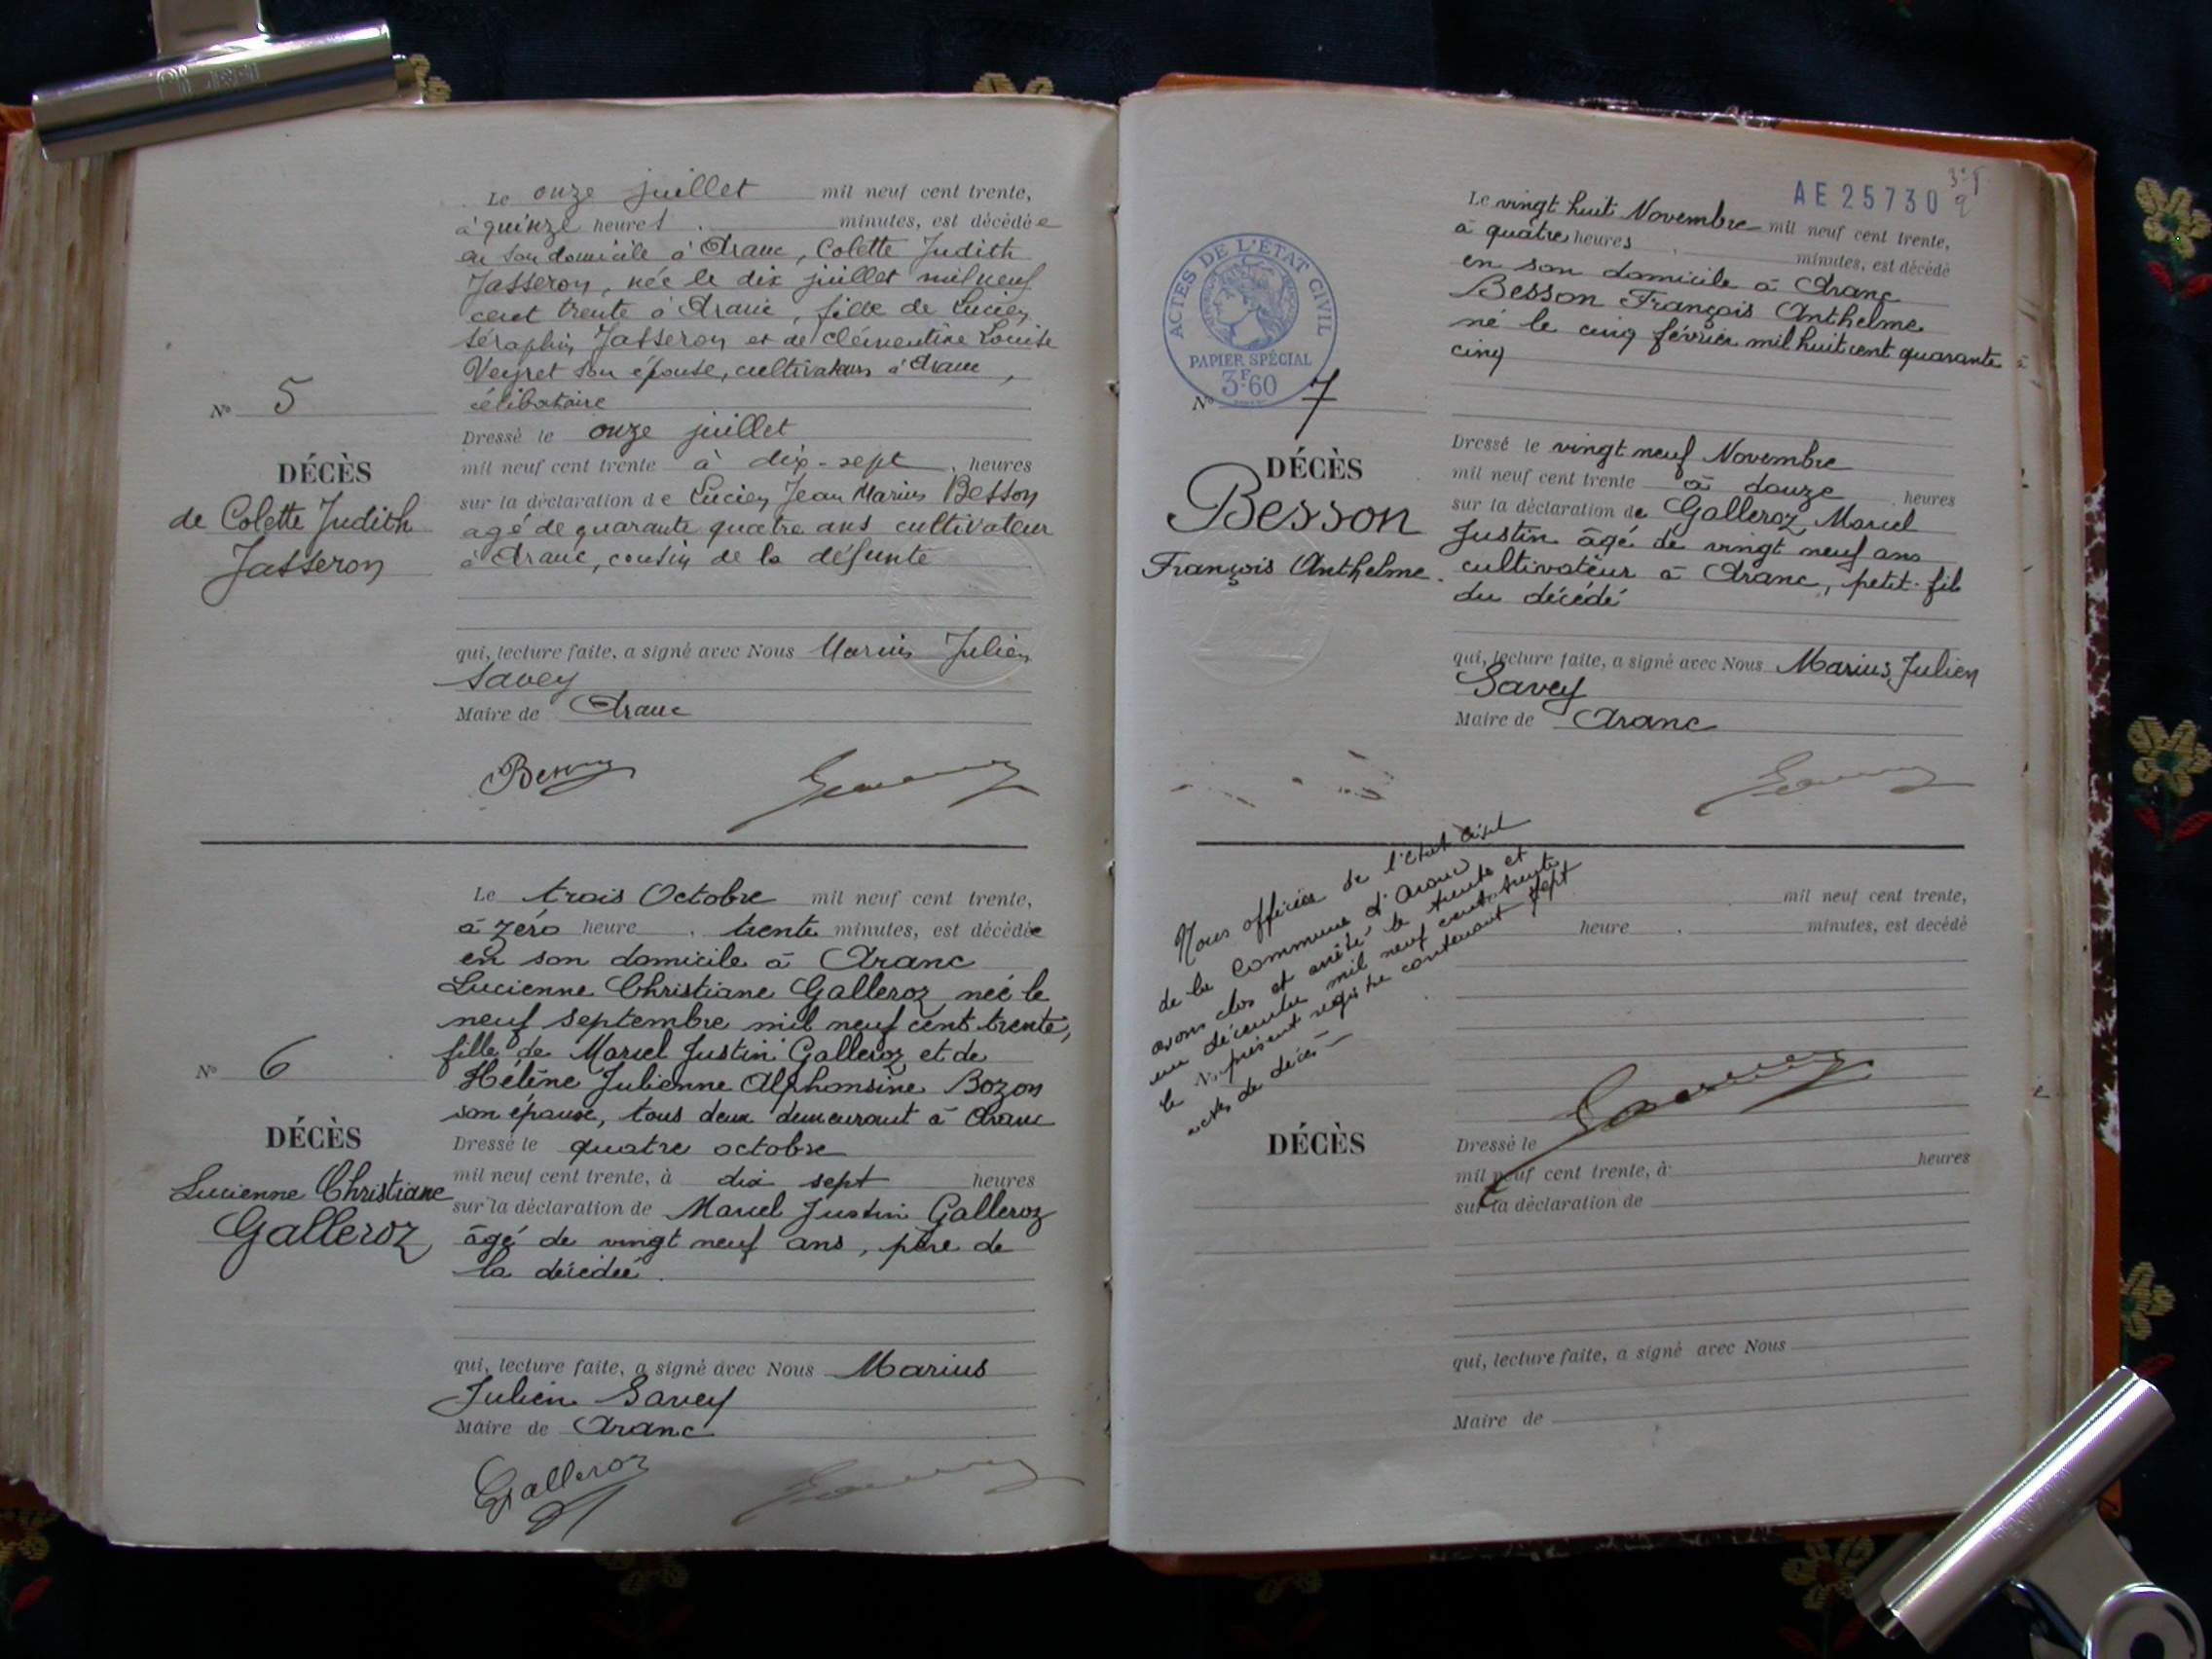 Le onze juillet mil neuf cent trente,
à quinze heures . minutes, est décédée
en son domicile à Aranc, Colette Judith
Jasseron, née le dix juillet mil neuf
cent trente à Aranc, fille de Lucien
Séraphin Jasseron et de Clémentine Louise
Veyret son épouse, cultivateurs à Aranc,
célibataire
N° 5
DÉCÈS
de Colette Judith
Jasseron
Dressé le onze juillet
mil neuf cent trente à dix-sept . heures
sur la déclaration de Lucien Jean Marius Besson
agé de quarante quatre ans cultivateur
à Aranc, cousin de la défunte
qui, lecture faite, a signé avec Nous Marius Julien
Savey
Maire de Aranc
Besson
Le trois Octobre mil neuf cent trente,
à zéro heure . trente minutes, est décédée
en son domicile à Aranc
Lucienne Christiane Galleroz née le
neuf septembre mil neuf cent trente,
fille de Marcel Justin Galleroz et de
Hélène Julienne Alphonsine Bozon
son épouse, tous deux demeurant à Aranc
N° 6
DÉCÈS
Lucienne Christiane
Galleroz
Dressé le quatre octobre
mil neuf cent trente, à dix sept heures
sur la déclaration de Marcel Justin Galleroz
âgé de vingt neuf ans, père de
la décédée.
qui, lecture faite, a signé avec Nous Marius
Julien Savey
Maire de Aranc
Galleroz
AE 25730
Le vingt huit Novembre mil neuf cent trente,
à quatre heures . minutes, est décédé
en son domicile à Aranc
Besson François Anthelme
né le cinq février mil huit cent quarante
cinq
ACTES DE L'ÉTAT CIVIL
PAPIER SPÉCIAL
3F60
N° 7
DÉCÈS
Besson
François Anthelme.
Dressé le vingt neuf Novembre
mil neuf cent trente à douze heures
sur la déclaration de Galleroz Marcel
Justin âgé de vingt neuf ans
cultivateur à Aranc, petit-fils
du décédé
qui, lecture faite, a signé avec Nous Marius Julien
Savey
Maire de Aranc
Nous officier de l'état civil
de la Commune d'Aranc
avons clos et arrêté le trente et
un décembre mil neuf cent trente
le présent registre contenant sept
actes de décès
mil neuf cent trente,
heure . minutes, est décédé
DÉCÈS
Dressé le
mil neuf cent trente, à heures
sur la déclaration de
qui, lecture faite, a signé avec Nous
Maire de